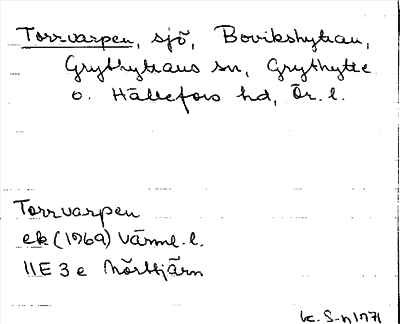 Torrvarpen, sjö, Bovikshyttan,
Grythyttans sn, Grythytte
o. Hällefors hd, Ör. l.
Torrvarpen
ek (1969) Värml. l.
11E 3e Mörttjärn